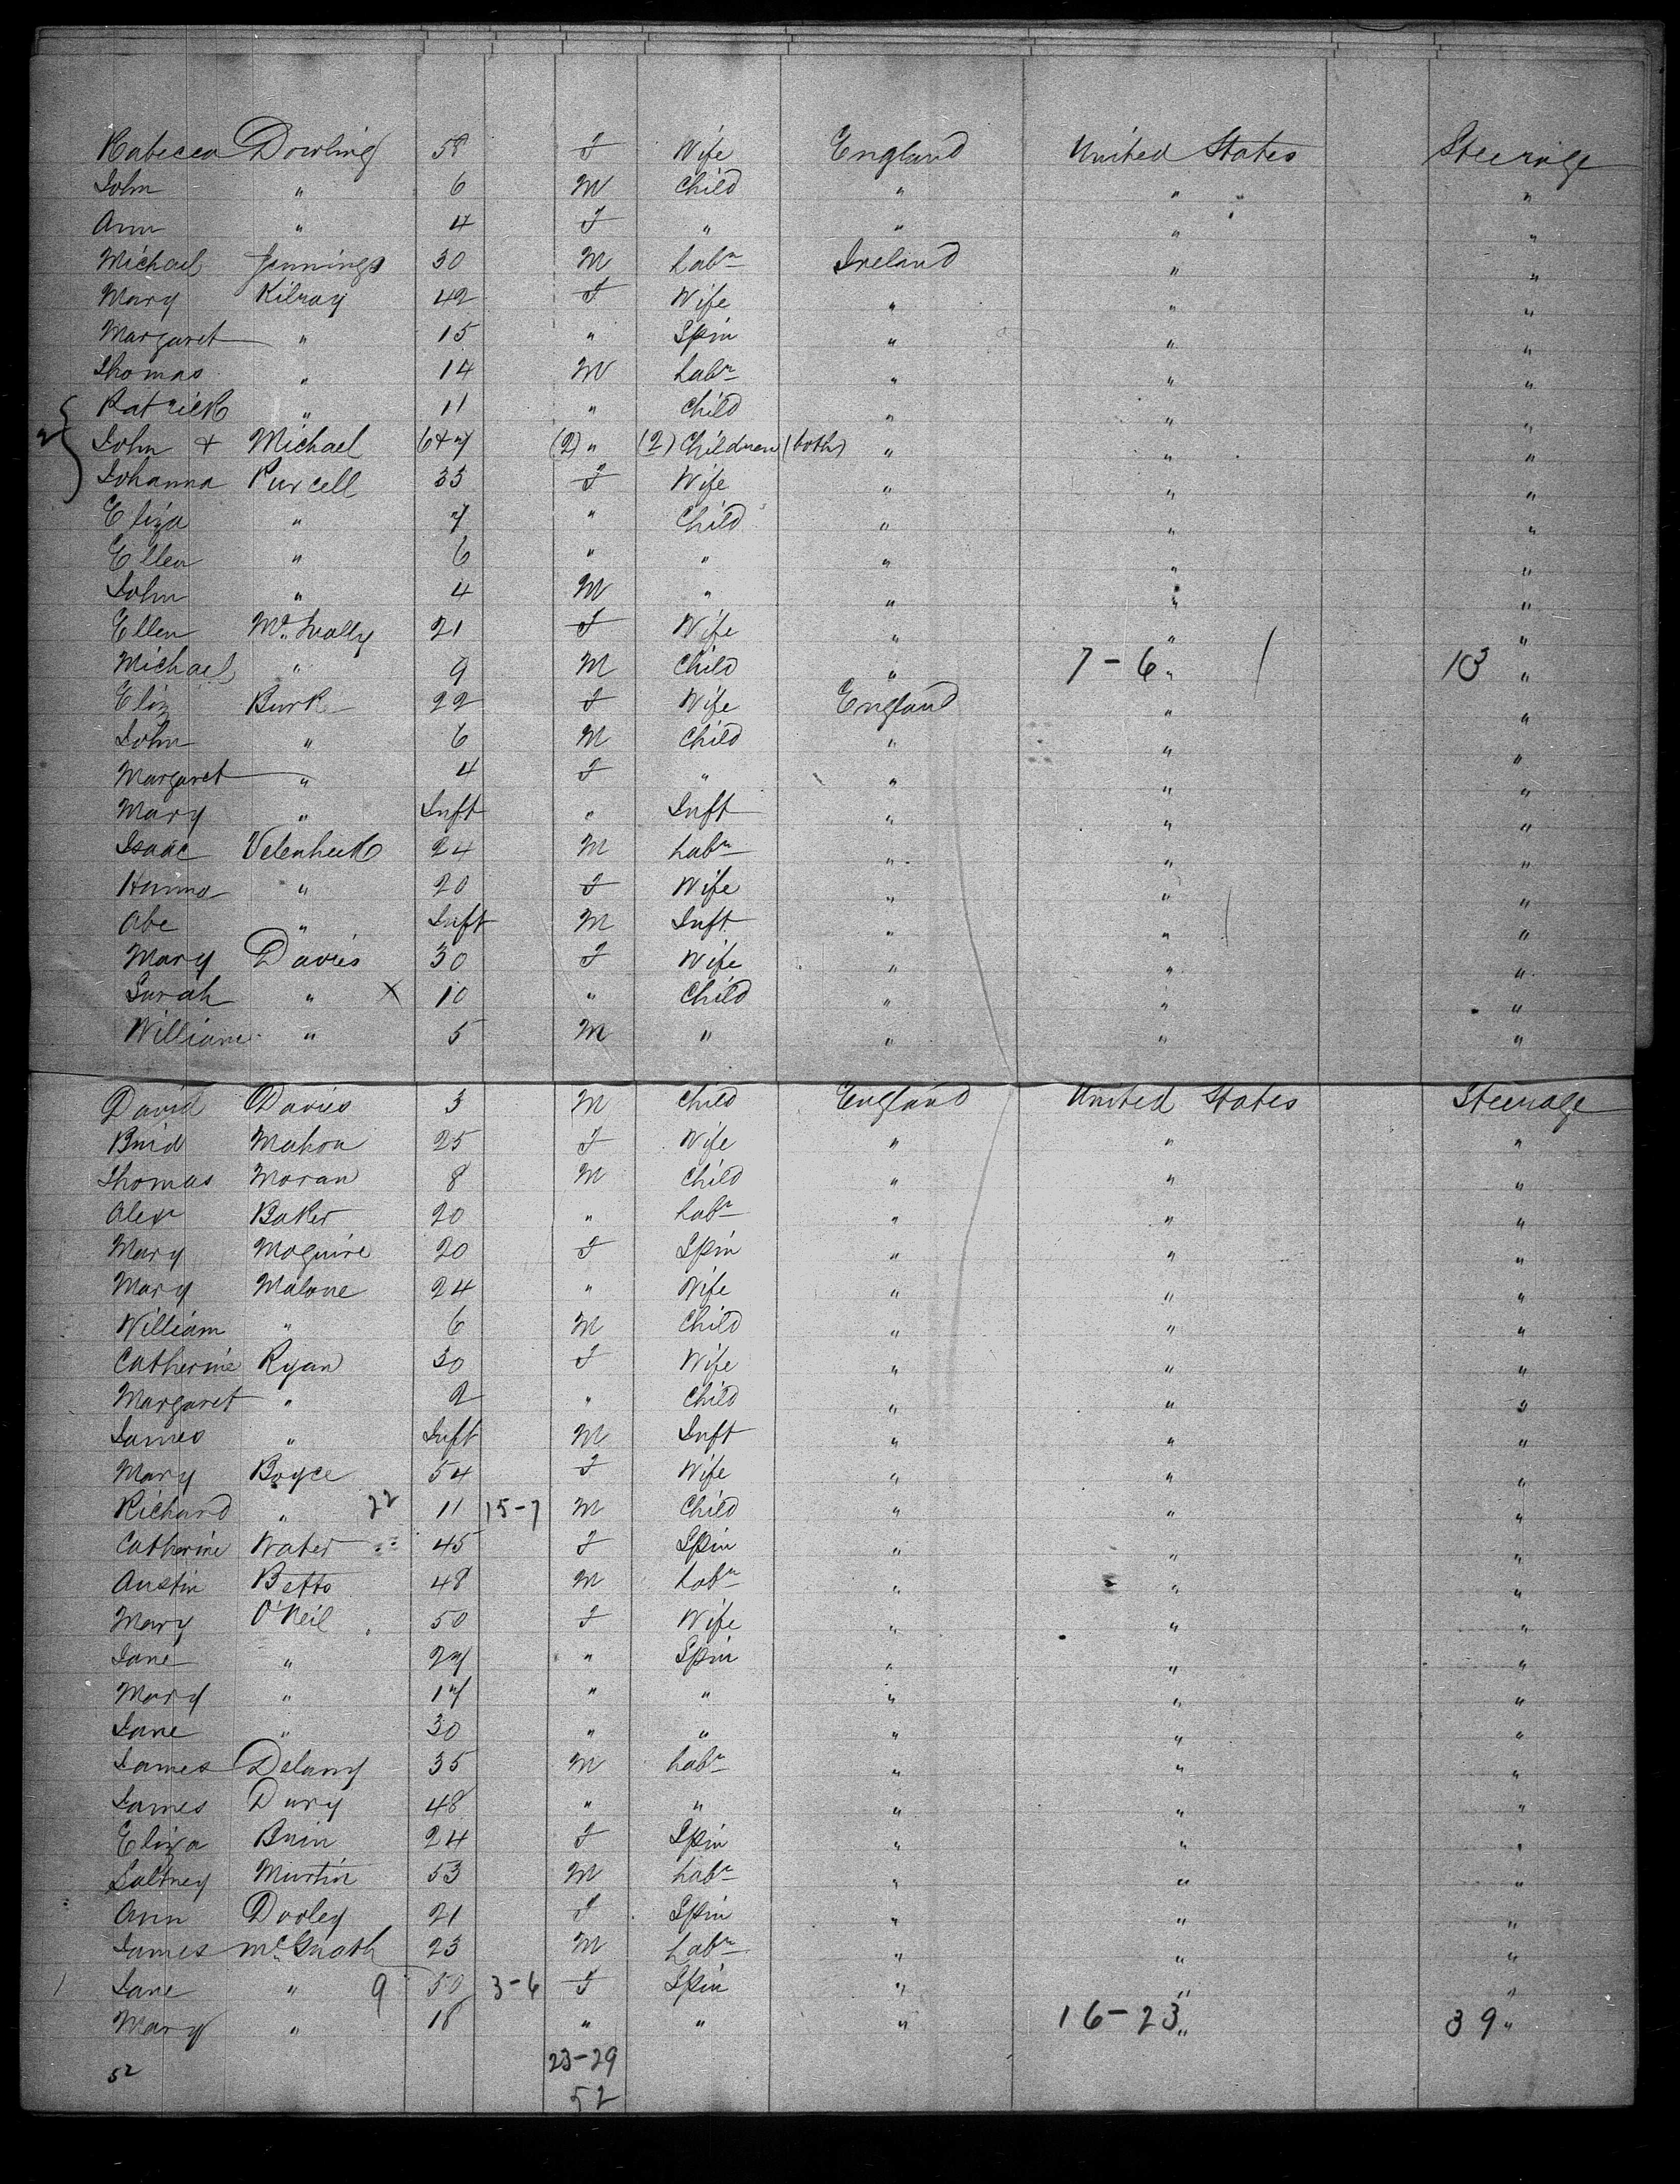 Rabecca Dowling 58 F Wife England United States Steerage
John " 6 M Child " " "
Ann " 4 F " " " "
Michael Jennings 30 M Labr Ireland " "
Mary Kilray 42 F Wife " " "
Margaret " 15 " Spin " " "
Thomas " 14 M Labr " " "
Patrick " 11 " Child " " "
2 John + Michael 6+7 (2) " (2) Children (both) " " "
Johanna Purcell 35 F Wife " " "
Eliza " 7 " Child " " "
Ellen " 6 " " " " "
John " 4 M " " " "
Ellen Mc 21 F Wife " " "
Michael " 9 M Child " 7-6 " / 13 "
Eliz Burke 22 F Wife England " "
John " 6 M Child " " "
Margaret " 4 F " " " "
Mary " Inft " Inft " " "
Isaac 24 M Labr " " "
Hanna " 20 F Wife " " "
Abe " Inft M Inft " " "
Mary Davies 30 F Wife " " "
Sarah " X 10 " Child " " "
William " 5 M " " " "
David Davies 3 M Child England United States Steerage
Brid Mahon 25 F Wife " " "
Thomas Moran 8 M Child " " "
Alexr Baker 20 " Labr " " "
Mary Maguire 20 F Spin " " "
Mary Malone 24 " Wife " " "
William " 6 M Child " " "
Catherine Ryan 30 F Wife " " "
Margaret " 2 " Child " " "
James " Inft M Inft " " "
Mary Boyce 54 F Wife " " "
Richard " 22 11 15-7 M Child " " "
Catherine Water 45 F Spin " " "
Austin Betts 48 M Labr " " "
Mary O'Neil 50 F Wife " " "
Jane " 27 " Spin " " "
Mary " 17 " " " " "
Jane " 30 " " " " "
James Delany 35 M Labr " " "
James Dury 48 " " " " "
Eliza Brin 24 F Spin " " "
Martin 53 M Labr " " "
Ann Dooley 21 F Spin " " "
James McGrath 23 M Labr " " "
Jane " 9 50 3-6 F Spin " " "
Mary " 18 " " " 16-23 " 39 "
52 23-29
52